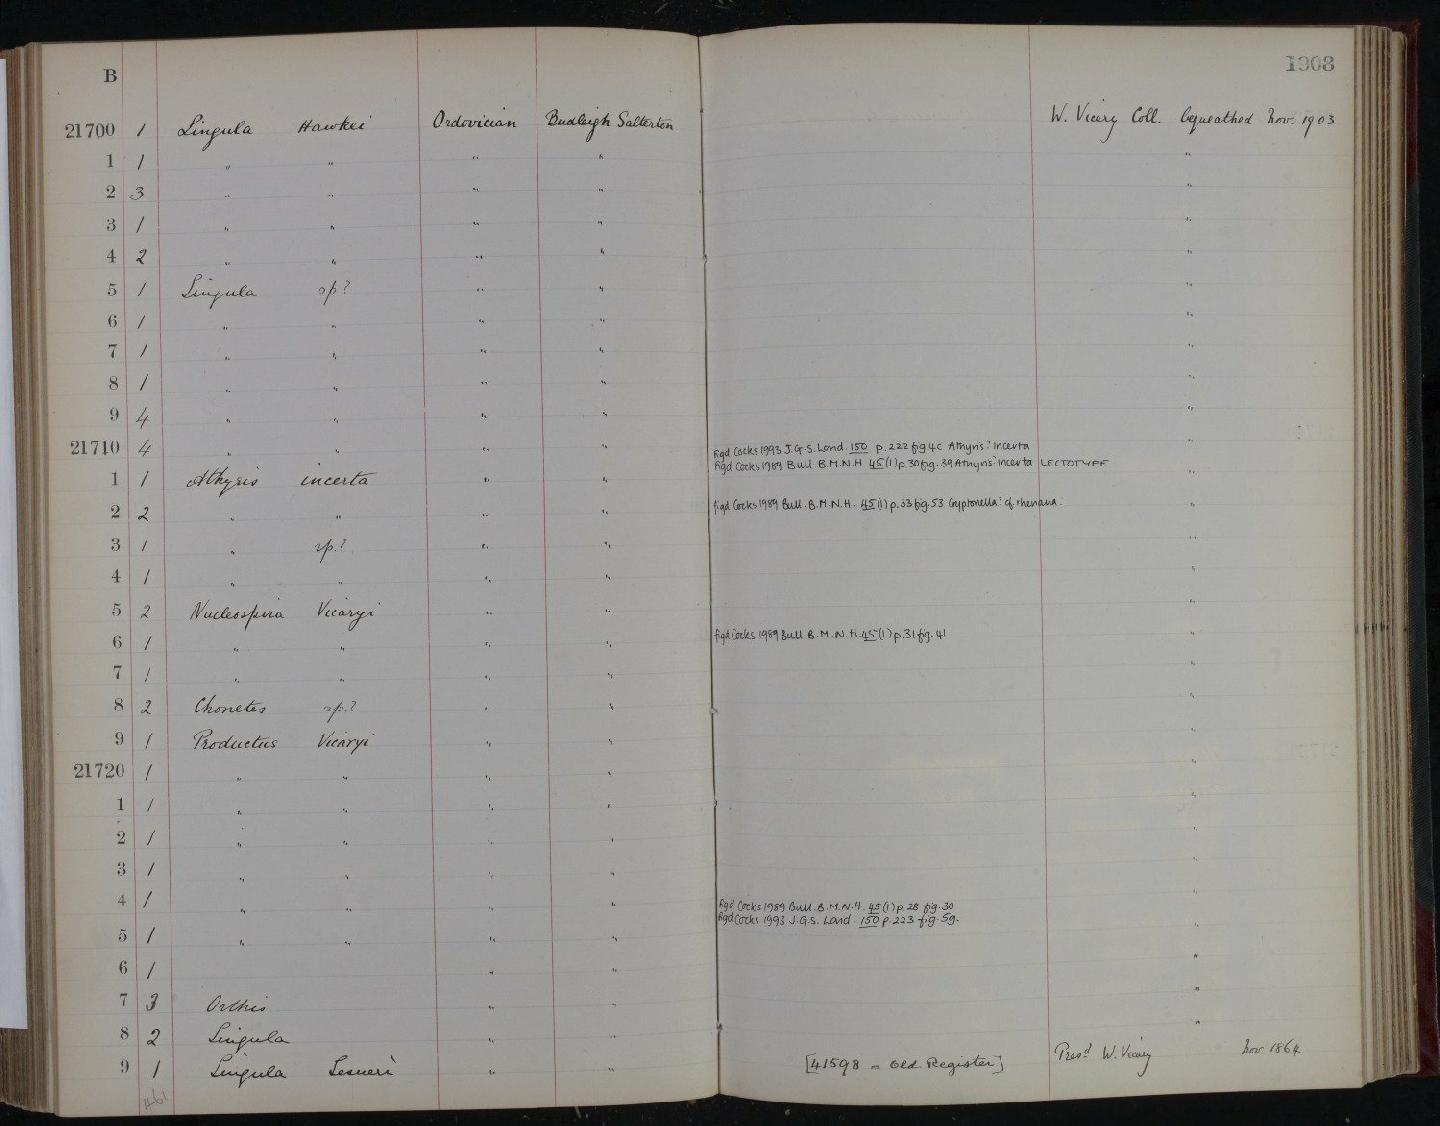 B 1908
21700 1 Lingula Hawkei Ordovician Budleigh Salterton W. Vicary Coll. bequeathed Nov. 1903
1 1 " " " " "
2 3 " " " " "
3 1 " " " " "
4 2 " " " " "
5 1 Lingula sp? " " "
6 1 " " " " "
7 1 " " " " "
8 1 " " " " "
9 4 " " " " "
21710 4 " " " " figd Cocks 1993 J.G.S. Lond. 150 p.222 fig 4c 'Athyris' incerta
1 1 Athyris incerta " " figd Cocks 1989 Bull B.M.N.H 45(1) p.30 fig.39 'Athyris' incerta LECTOTYPE "
2 2 " " " " figd Cocks 1989 Bull. B.M.N.H. 45(1) p.33 fig.53 'Cryptonella' cf rhenana. "
3 1 " sp.? " " "
4 1 " " " " "
5 2 Nucleospira Vicaryi " " "
6 1 " " " " figd Cocks 1989 Bull B.M.N.H. 45(1) p.31 fig.41 "
7 1 " " " " "
8 2 Chonetes sp.? " " "
9 1 Productus Vicaryi " " "
21720 1 " " " " "
1 1 " " " " "
2 1 " " " " "
3 1 " " " " "
4 1 " " " " figd Cocks 1989 Bull. B.M.N.H. 45(1) p.28 fig.30 "
figd Cocks 1993 J.G.S. Lond. 150 p.223 fig.5g.
5 1 " " " " "
6 1 " " "
7 3 Orthis " " "
8 2 Lingula " " "
9 1 Lingula Lesueri " " [41598 = Old Register] Presd. W. Vicary Nov 1864